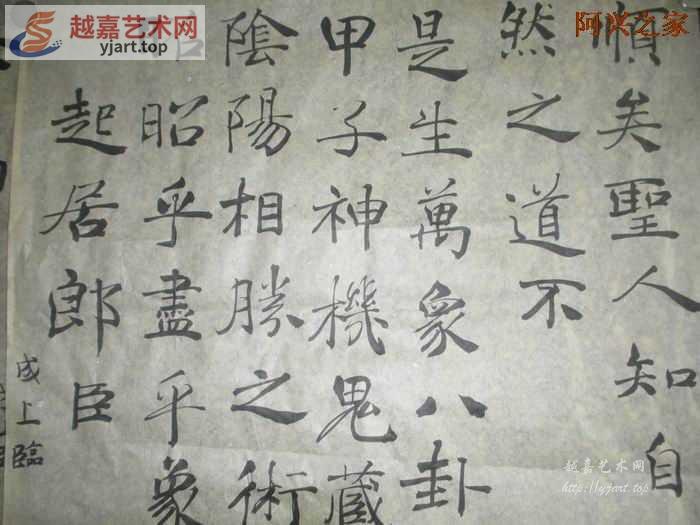 順矣聖人知自
然之道不
是生萬象八卦
甲子神機鬼藏
陰陽相勝之術
昭乎盡乎象
起居郎臣
成上臨
越嘉艺术网
yjart.top
阿兴之家
越嘉艺术网
http://yjart.top